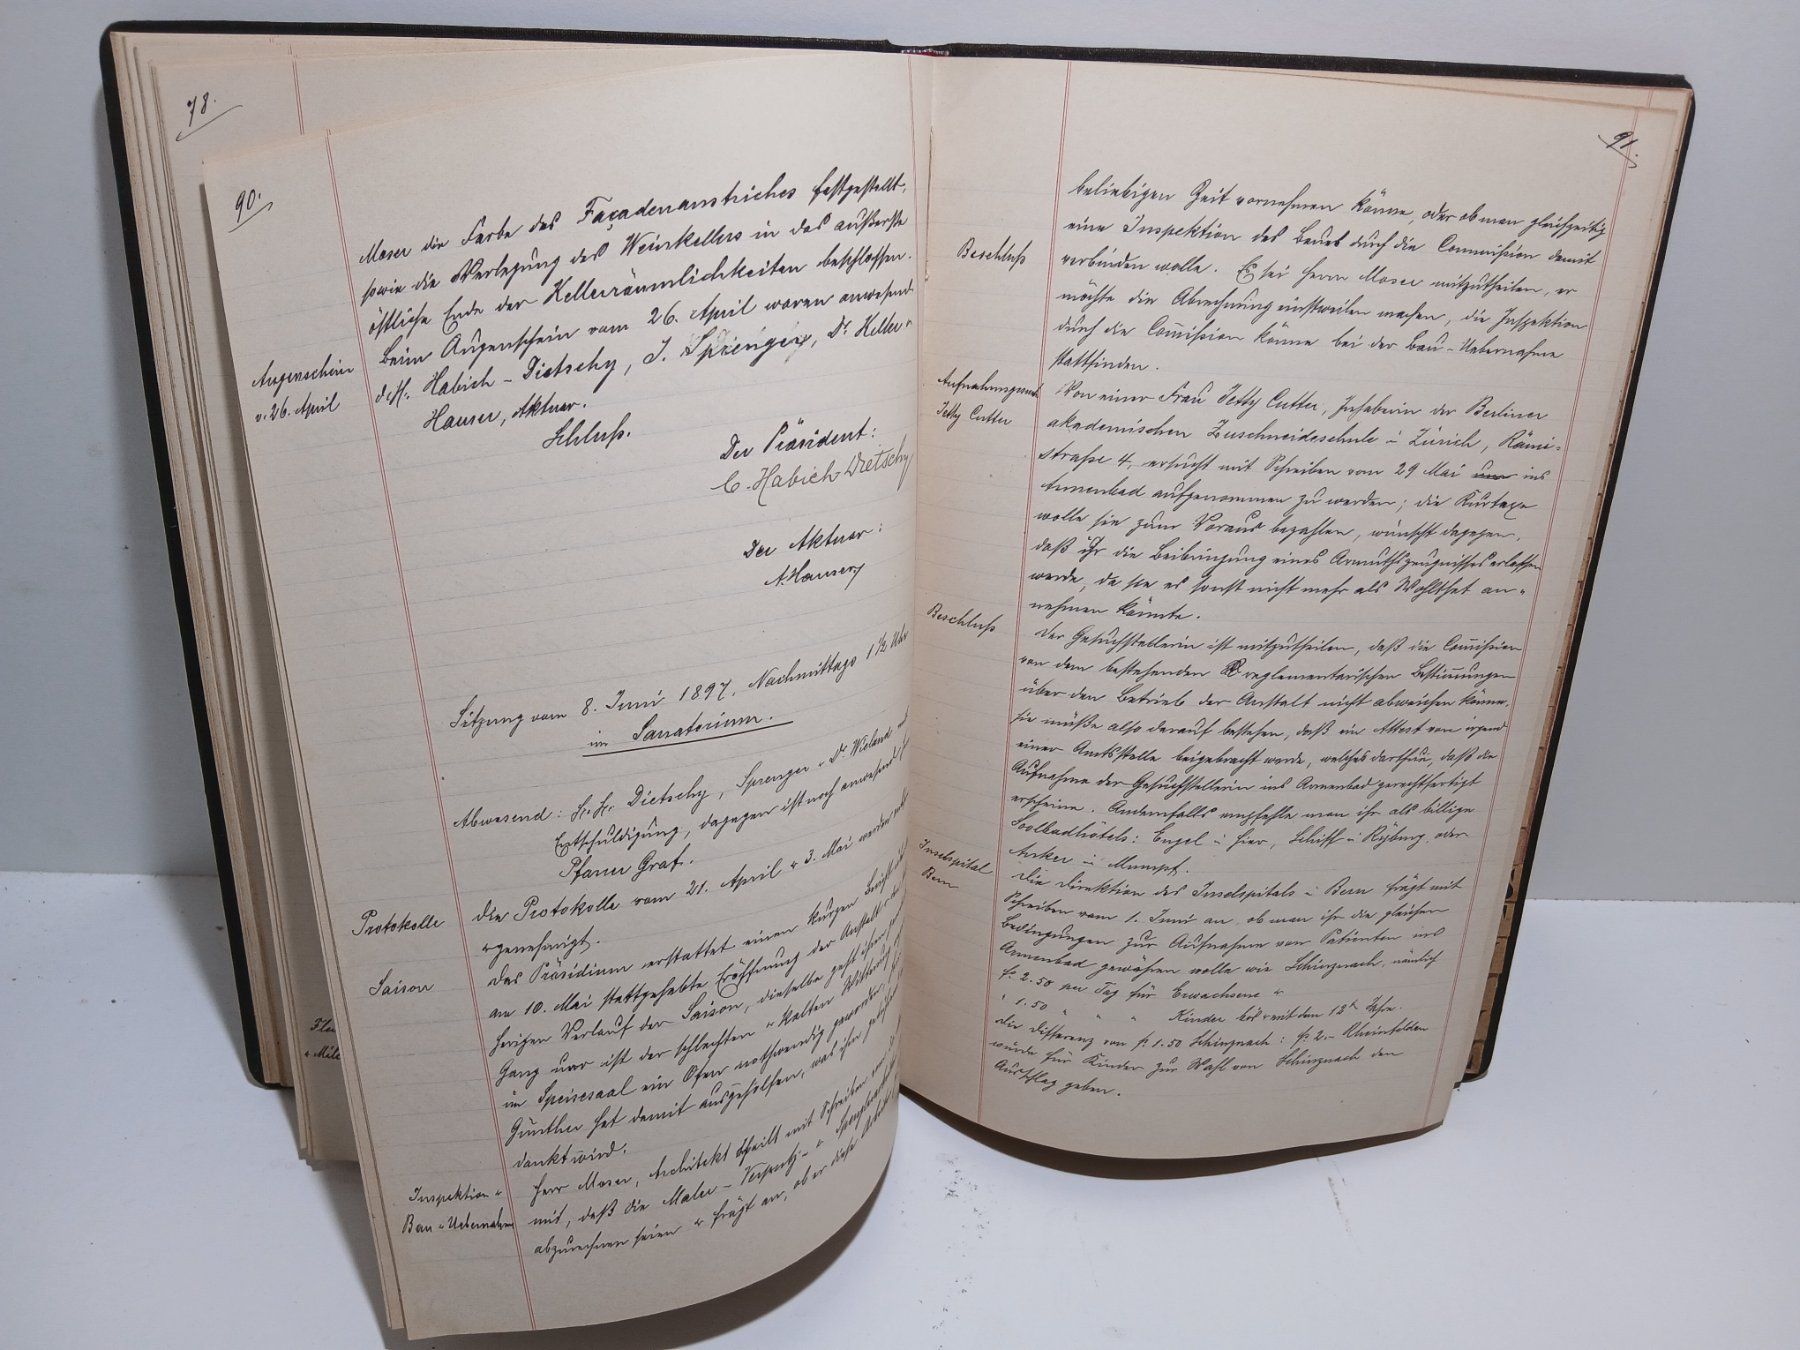 78.
90.
Moser die Farbe des Façadenanstriches festgestellt,
sowie die Verlegung des Weinkellers in das äußerste
östliche Ende der Kellerräumlichkeiten beschlossen.
Augenschein
v. 26. April
Beim Augenschein vom 26. April waren anwesend
d. H. Habich-Dietschy, J. Sprenger, Dr. Keller u.
Hauser, Aktuar.
Schluß.
Der Präsident:
C. Habich-Dietschy
Der Aktuar:
A. Hauser
Sitzung vom 8. Juni 1897, Nachmittags 1½ Uhr
im Sanatorium.
Abwesend: H. H. Dietschy, Sprenger u. Dr. Wieland mit
Entschuldigung, dagegen ist noch anwesend H.
Pfarrer Graf.
Protokolle
Die Protokolle vom 21. April u. 3. Mai werden
u. genehmigt.
Saison
Das Präsidium erstattet einen kurzen Bericht
am 10. Mai stattgehabte Eröffnung der Anstalt u. den
herigen Verlauf der Saison, dieselbe geht ihren
Gang nur ist der schlechten u. kalten Witterung
im Speisesaal ein Ofen nothwendig geworden,
Günther hat damit ausgeholfen, was ihm
dankt wird.
Inspektion u.
Bau-Uebernahme
Herr Moser, Architekt theilt mit Schreiben vom
mit, daß die Maler- Verputz- u. Spenglerarbeiten
abzurechnen seien u. frägt an, ob er diese Arbeit
91.
beliebigen Zeit vornehmen könne, oder ob man gleichzeitig
eine Inspektion des Baues durch die Commission damit
Beschluß
verbinden wolle. Es sei Herrn Moser mitzutheilen, er
möchte die Abrechnung einstweilen machen, die Inspektion
durch die Com̅ission könne bei der Bau-Uebernahme
stattfinden.
Aufnahmsgesuch
Jetty Cutter
Von einer Frau Jetty Cutter, Inhaberin der Berliner
akademischen Zuschneideschule in Zürich, Rämi-
straße 4, ersucht mit Schreiben vom 29 Mai um ins
Armenbad aufgenommen zu werden; die Kurtaxe
wolle sie zum Voraus bezahlen, wünscht dagegen,
daß ihr die Beibringung eines Armuthszeugnisses erlassen
werde, da sie es sonst nicht mehr als Wohlthat an-
nehmen könnte.
Beschluß
Der Gesuchstellerin ist mitzutheilen, daß die Com̅ission
von den bestehenden reglementarischen Bestim̅ungen
über den Betrieb der Anstalt nicht abweichen könne,
sie müße also darauf bestehen, daß ein Attest von irgend
einer Amtsstelle beigebracht werde, welches darthue, daß die
Aufnahme der Gesuchstellerin ins Armenbad gerechtfertigt
erscheine. Andernfalls empfehle man ihr als billige
Soolbadhôtels: Engel in hier, Schiff in Ryburg, oder
Anker in Mumpf.
Inselspital
Bern
Die Direktion des Inselspitals in Bern frägt mit
Schreiben vom 1. Juni an, ob man ihr die gleichen
Bedingungen zur Aufnahme von Patienten ins
Armenbad gewähren wolle wie Schinznach, nämlich
fr. 2.50 per Tag für Erwachsene u.
" 1.50 " " " Kinder bis u. mit dem 13t Jahre.
Die Differenz von fr. 1.50 Schinznach: fr. 2.- Rheinfelden
würde für Kinder zur Wahl von Schinznach den
Ausschlag geben.